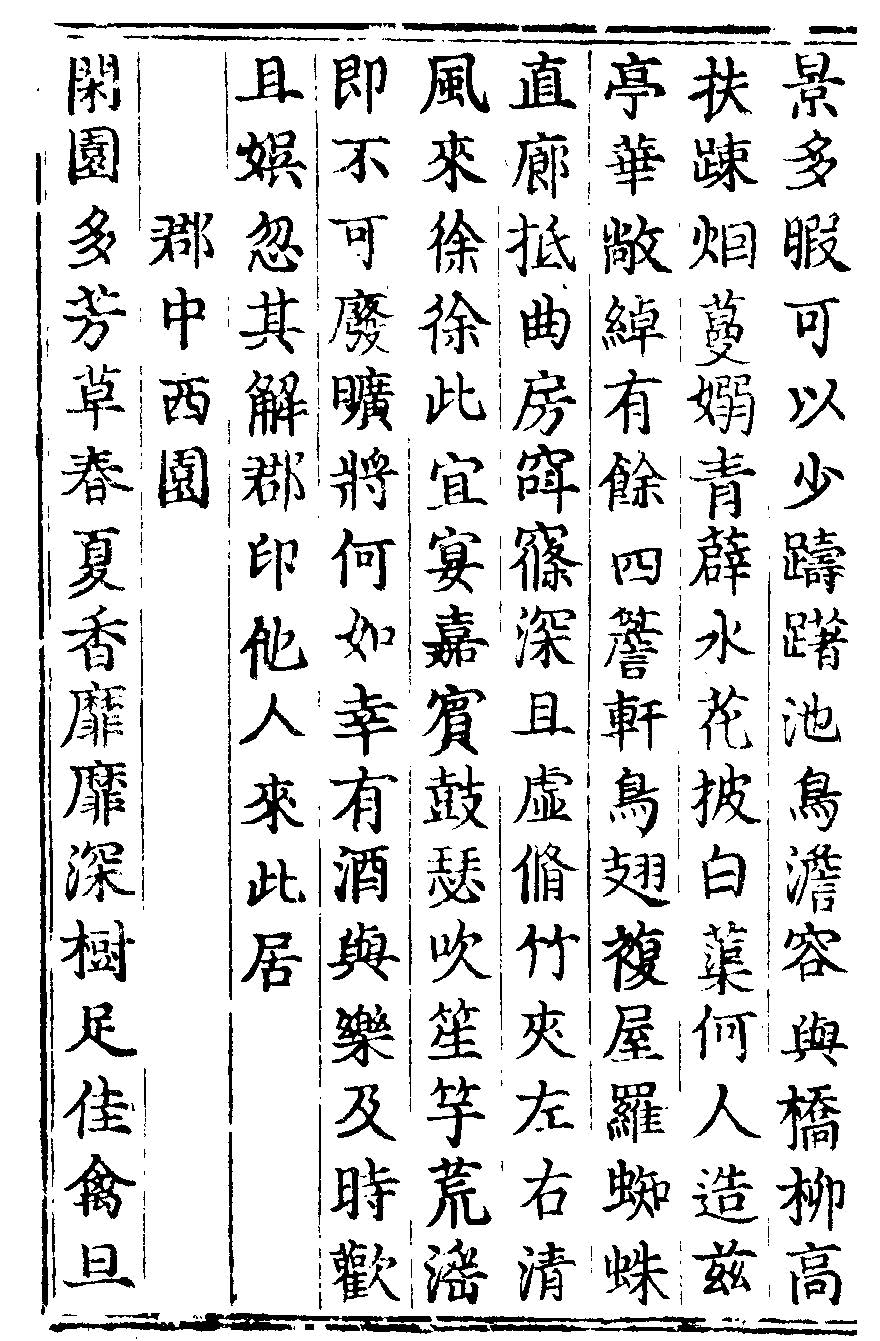 景多暇可以少躊躇池鳥澹容與橋柳高
扶踈烟蔓嫋青薜水花披白蕖何人造茲
亭華敞綽有餘四簷軒鳥翅複屋羅蜘蛛
直廊抵曲房窱深且虛脩竹夾左右清
風來徐徐此宜宴嘉賓鼓瑟吹笙竽荒滛
即不可廢曠將何如幸有酒與樂及時歡
且娛忽其解郡印他人來此居
郡中西園
閑園多芳草春夏香靡靡深樹足佳禽旦